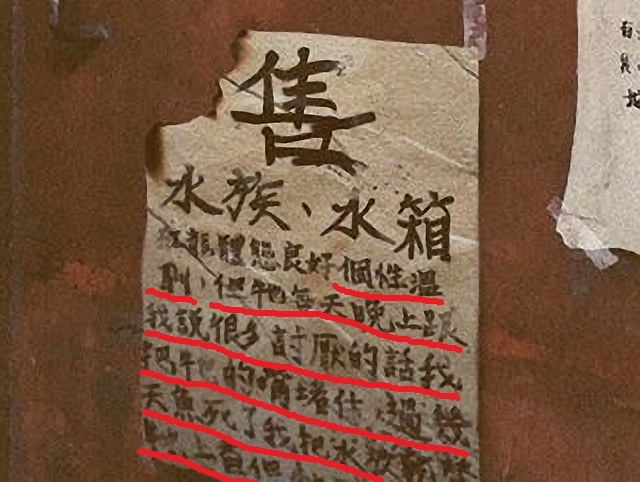 售
水族、水箱
紅龍體態良好個性溫
馴,但牠每天晚上跟
我說很多討厭的話我
把牠的嘴堵住,過幾
天魚死了我把水放
一直但